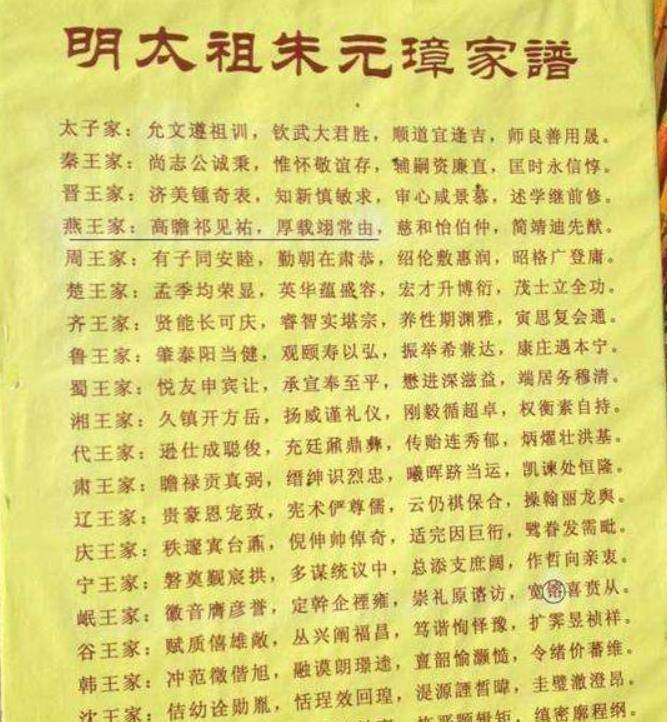 明太祖朱元璋家譜
太子家：允文遵祖训，钦武大君胜，顺道宜逢吉，师良善用晟。
秦王家：尚志公诚秉，惟怀敬谊存，辅嗣资廉直，匡时永信惇。
晋王家：济美锺奇表，知新慎敏求，审心咸景慕，述学继前修。
燕王家：高瞻祁见祐，厚载翊常由，慈和怡伯仲，简靖迪先猷。
周王家：有子同安睦，勤朝在肃恭，绍伦敷惠润，昭格广登庸。
楚王家：孟季均荣显，英华蕴盛容，宏才升博衍，茂士立全功。
齐王家：贤能长可庆，睿智实堪宗，养性期渊雅，寅思复会通。
鲁王家：肇泰阳当健，观颐寿以弘，振举希兼达，康庄遇本宁。
蜀王家：悦友申宾让，承宣奉至平，懋进深滋益，端居务穆清。
湘王家：久镇开方岳，扬威谨礼仪，刚毅循超卓，权衡素自持。
代王家：逊仕成聪俊，充廷鼐鼎彝，传贻连秀郁，炳燿壮洪基。
肃王家：瞻禄贡真弼，缙绅识烈忠，曦晖跻当运，凯谏处恒隆。
辽王家：贵豪恩宠致，宪术俨尊儒，云仍祺保合，操翰丽龙舆。
庆王家：秩邃寘台鼒，倪伸帅倬奇，适完因巨衍，骘眷发需毗。
宁王家：磐奠觐宸拱，多谋统议中，总添支庶阔，作哲向亲衷。
岷王家：徽音膺彦誉，定幹企禋雍，崇礼原谘访，宽镕喜贲从。
谷王家：赋质僖雄敞，丛兴阐福昌，笃谐恂怿豫，扩霁昱祯祥。
韩王家：冲范徵偕旭，融谟朗璟逵，亶韶愉灏慥，令绪价蕃维。
沈王家：佶幼诠勋胤，恬珵效回瑝，湜源諲晢暐，圭璧澈澄昂。
缜密廓程纲。